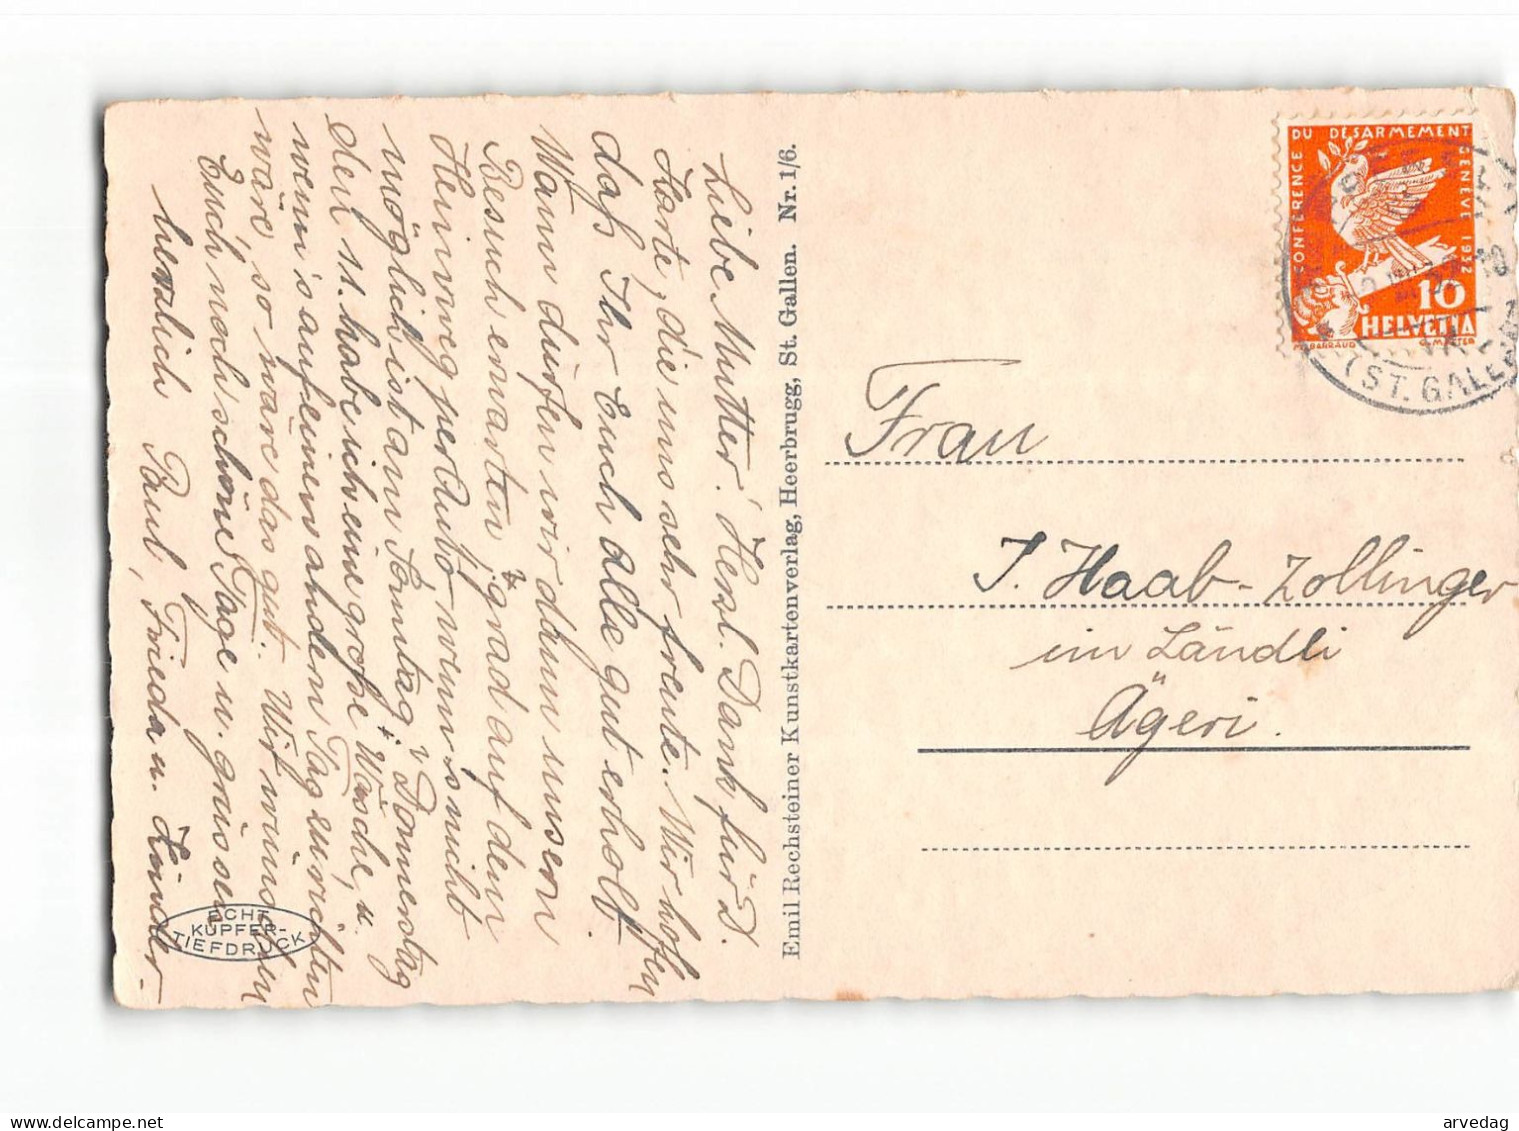 Liebe Mutter! Herzl. Dank für D.
Karte, die uns sehr freute. Wir hoffen
daß Ihr Euch alle gut erholt.
Wann dürfen wir dann unsern
Besuch erwarten? grad auf dem
Heimweg per Auto wenn's nicht
möglich ist am Sonntag, Donnerstag
den 11. habe ich eine große Wäsche, u.
wenn's auf einen andern Tag zu richten
wäre, so wäre das gut. Wir wünschen
Euch noch schöne Tage u. grüssen
herzlich Paul, Frieda u. Kinder.
ECHT
KUPFER-
TIEFDRUCK
Emil Rechsteiner Kunstkartenverlag, Heerbrugg, St. Gallen. Nr. 1/6.
CONFERENCE DU DESARMEMENT GENEVE 1932
10
HELVETIA
(ST. GALLEN)
Frau
J. Haab-Zollinger
im Ländli
Ägeri.
arvedag